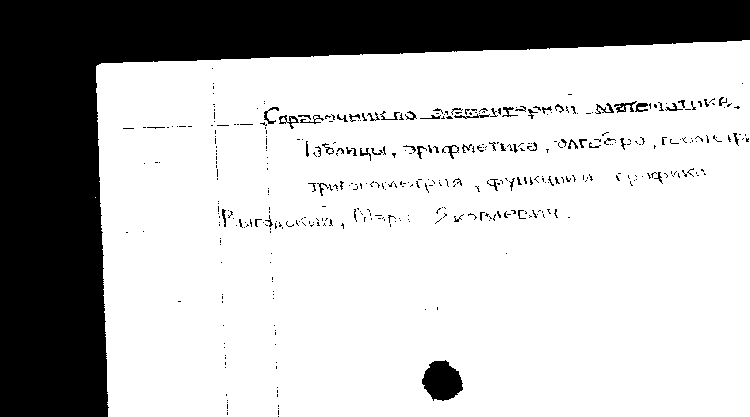 Справочник по элементарной математике.
Таблицы, арифметика, алгебра, геометри
тригонометрия, функции и графики
Выгодский, Марк Яковлевич.